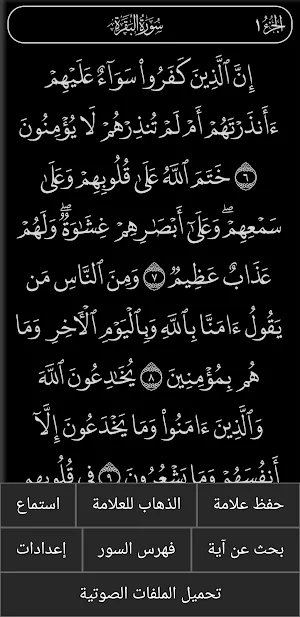 الجزء ١ سورة البقرة
إِنَّ ٱلَّذِينَ كَفَرُوا۟ سَوَآءٌ عَلَيْهِمْ
ءَأَنذَرْتَهُمْ أَمْ لَمْ تُنذِرْهُمْ لَا يُؤْمِنُونَ
٦ خَتَمَ ٱللَّهُ عَلَىٰ قُلُوبِهِمْ وَعَلَىٰ
سَمْعِهِمْ ۖ وَعَلَىٰٓ أَبْصَـٰرِهِمْ غِشَـٰوَةٌ ۖ وَلَهُمْ
عَذَابٌ عَظِيمٌ ٧ وَمِنَ ٱلنَّاسِ مَن
يَقُولُ ءَامَنَّا بِٱللَّهِ وَبِٱلْيَوْمِ ٱلْـَٔاخِرِ وَمَا
هُم بِمُؤْمِنِينَ ٨ يُخَـٰدِعُونَ ٱللَّهَ
وَٱلَّذِينَ ءَامَنُوا۟ وَمَا يَخْدَعُونَ إِلَّآ
أَنفُسَهُمْ وَمَا يَشْعُرُونَ ٩ فِى قُلُوبِهِم
حفظ علامة الذهاب للعلامة استماع
بحث عن آية فهرس السور إعدادات
تحميل الملفات الصوتية